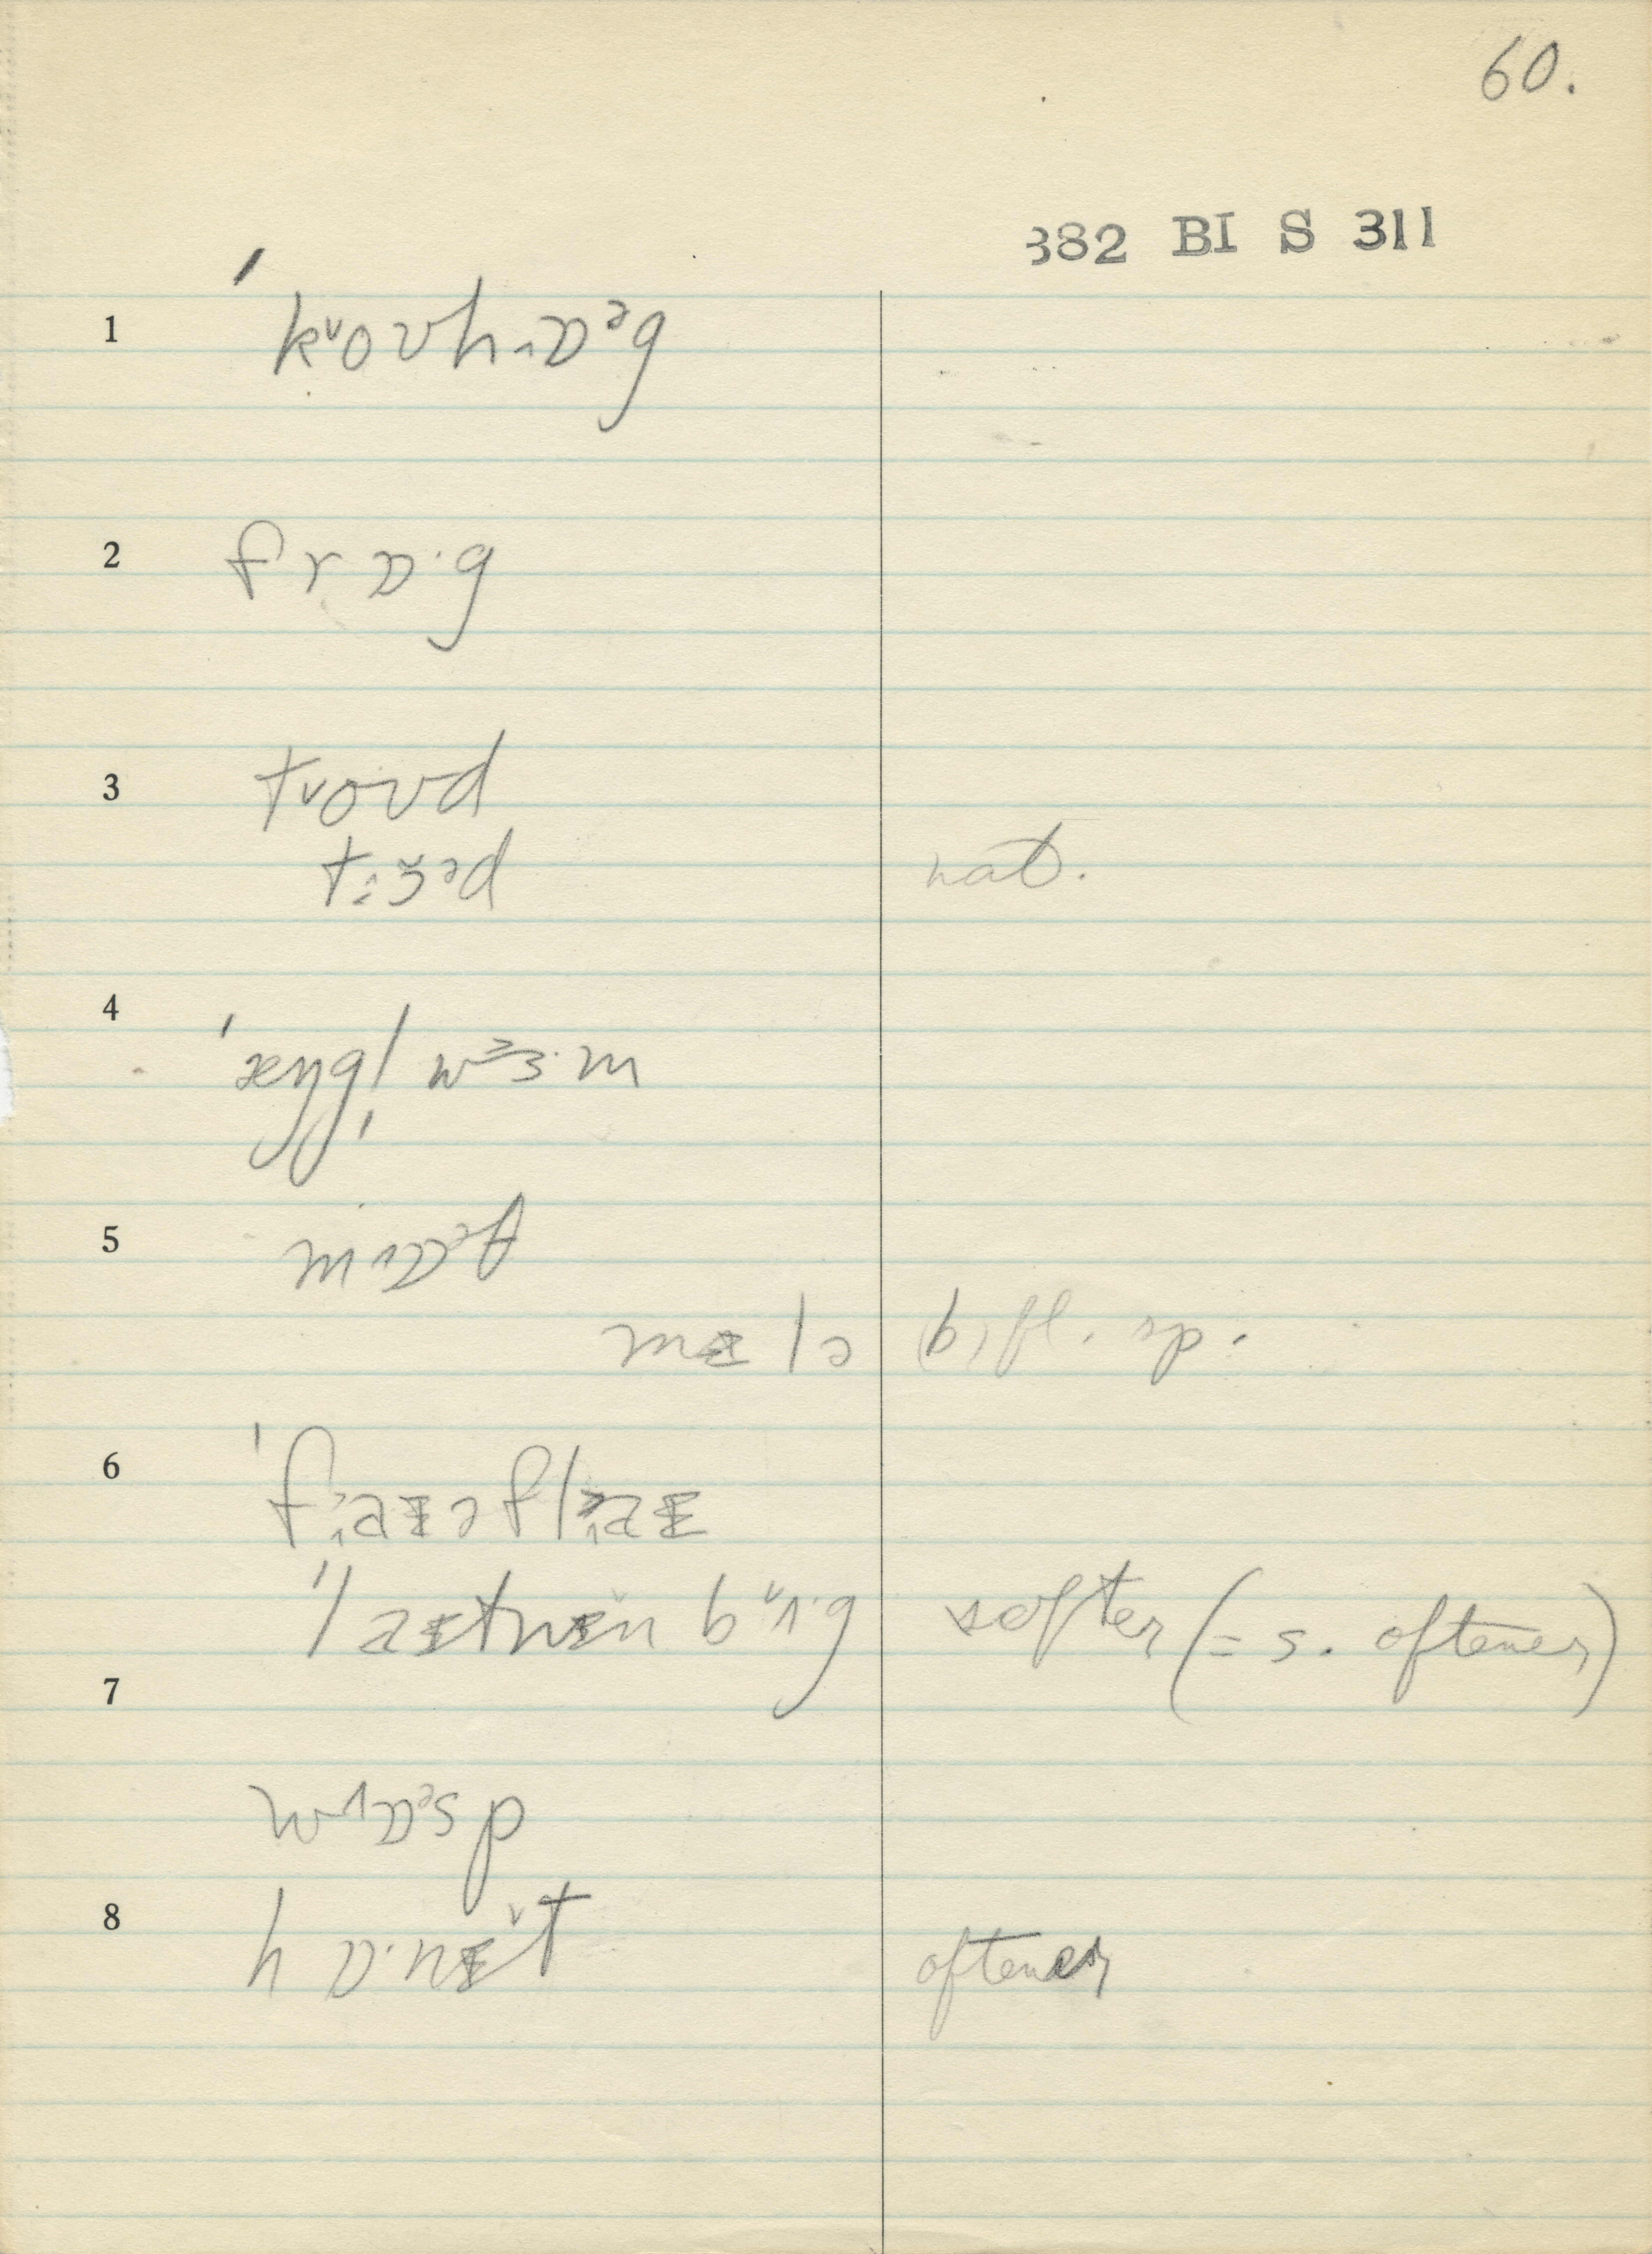 60.
382 BI S 311
1 ˈk˅oʊh‸ɒᵊg
2 frɒ·g
3 t˅oʊd
tː ɜ̆ᵊd nat.
4 ˈæŋgl̩wɜ·m
5 m‸ɒᵊθ
mɪlə (b) fl. sp.
6 ˈfaɪəflaɪ
ˈlaɪtnɪn b˅ʌ·g softer (= s. oftener)
7
w‸ɒᵊsp
8 hɒ·nɪ˅t oftener